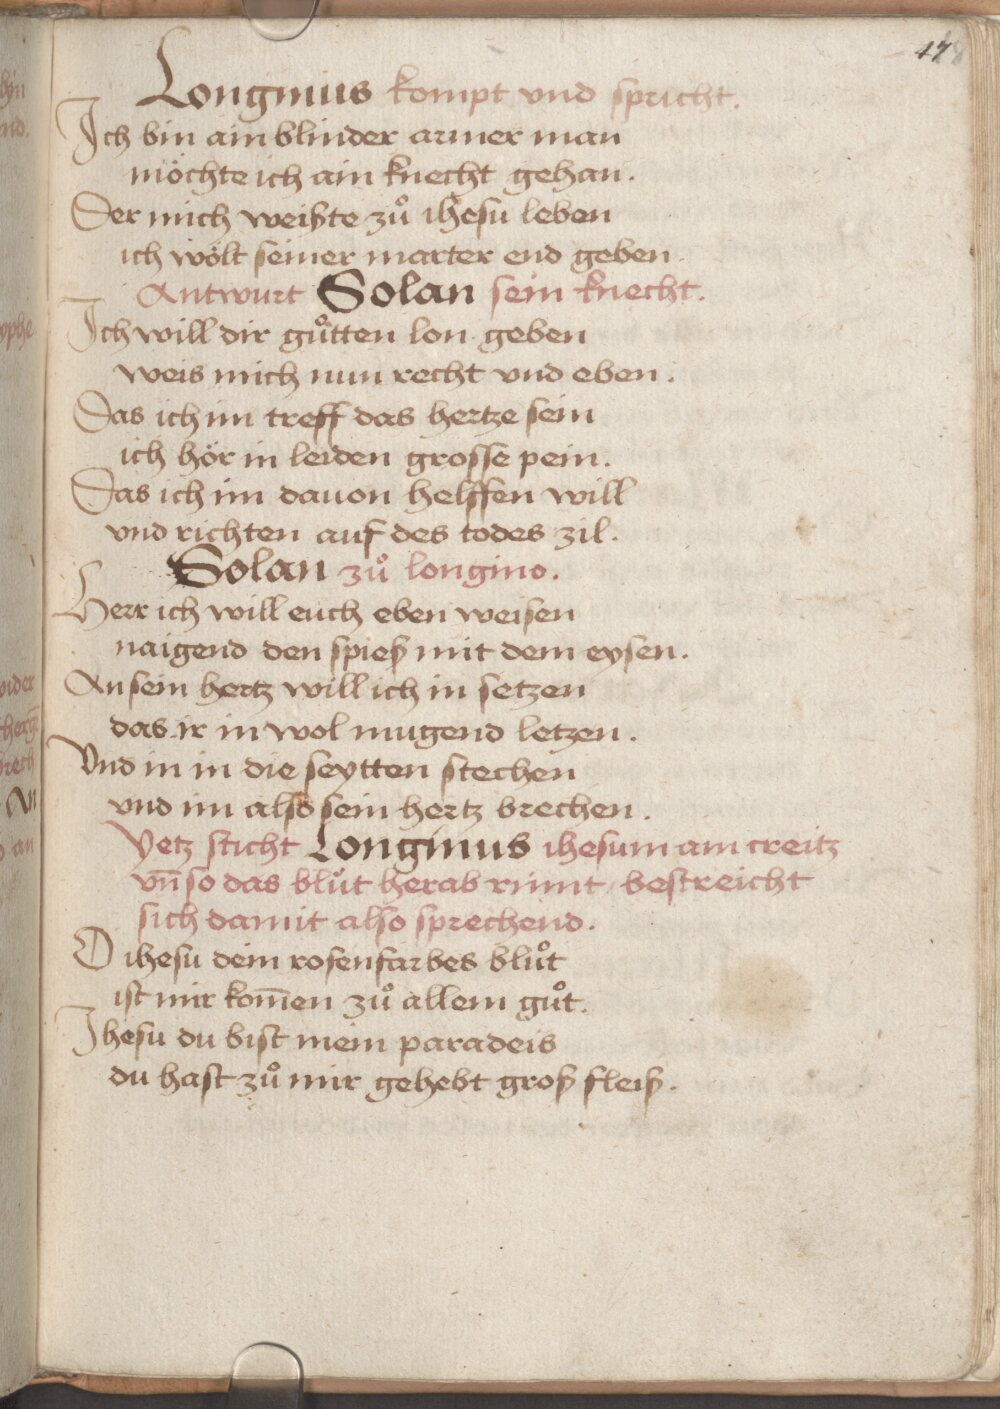 17
Longinus kompt vnd spricht.
Ich bin ain blinder armer man
möchte ich ain knecht gehan.
Der mich weißte zů ihesu leben
ich wölt seiner marter end geben.
Antwurt Solan sein knecht.
Ich will dir gůtten lon geben
weis mich nun recht vnd eben.
Das ich im treff das hertze sein
ich hör in leiden grosse pein.
Das ich im dauon helffen will
vnd richten auf des todes zil.
Solan zů longino.
Herr ich will euch eben weisen
naigend den spieß mit dem eysen.
An sein hertz will ich in setzen
das ir in wol mugend letzen.
Vnd in in die seytten stechen
vnd im also sein hertz brechen.
Yetz sticht Longinus ihesum am creitz
vn̄ so das blůt herab rinnt / bestreicht
sich damit also sprechend.
O ihesu dein rosenfarbes blůt
ist mir kom̄en zů allem gůt.
Ihesu du bist mein paradeis
du hast zů mir gehebt groß fleiß.